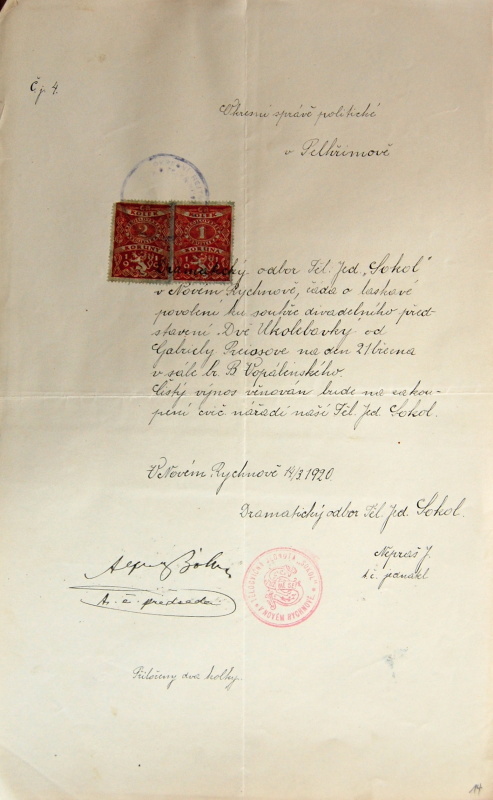 Č.j. 4.
Okresní správě politické
v Pelhřimově
KOLEK
2
KORUNY
KOLEK
1
KORUNA
Dramatický odbor Těl. Jed. „Sokol"
v Novém Rychnově, žádá o laskavé
povolení ku souhře divadelního před-
stavení „Dvě Ukolébavky" od
Gabriely Preissove na den 21 března
v sále br. B Vopálenského.
Čistý výnos věnován bude na zakou-
pení cvič nářadí naší Těl. Jed Sokol.
V Novém Rychnově 14/3 1920
Dramatický odbor Těl. Jed. Sokol.
Nepraš J.
t. č. jednatel
t. č. předseda
TĚLOCVIČNÁ JEDNOTA „SOKOL"
V NOVÉM RYCHNOVĚ.
Přiloženy dva kolky.
14